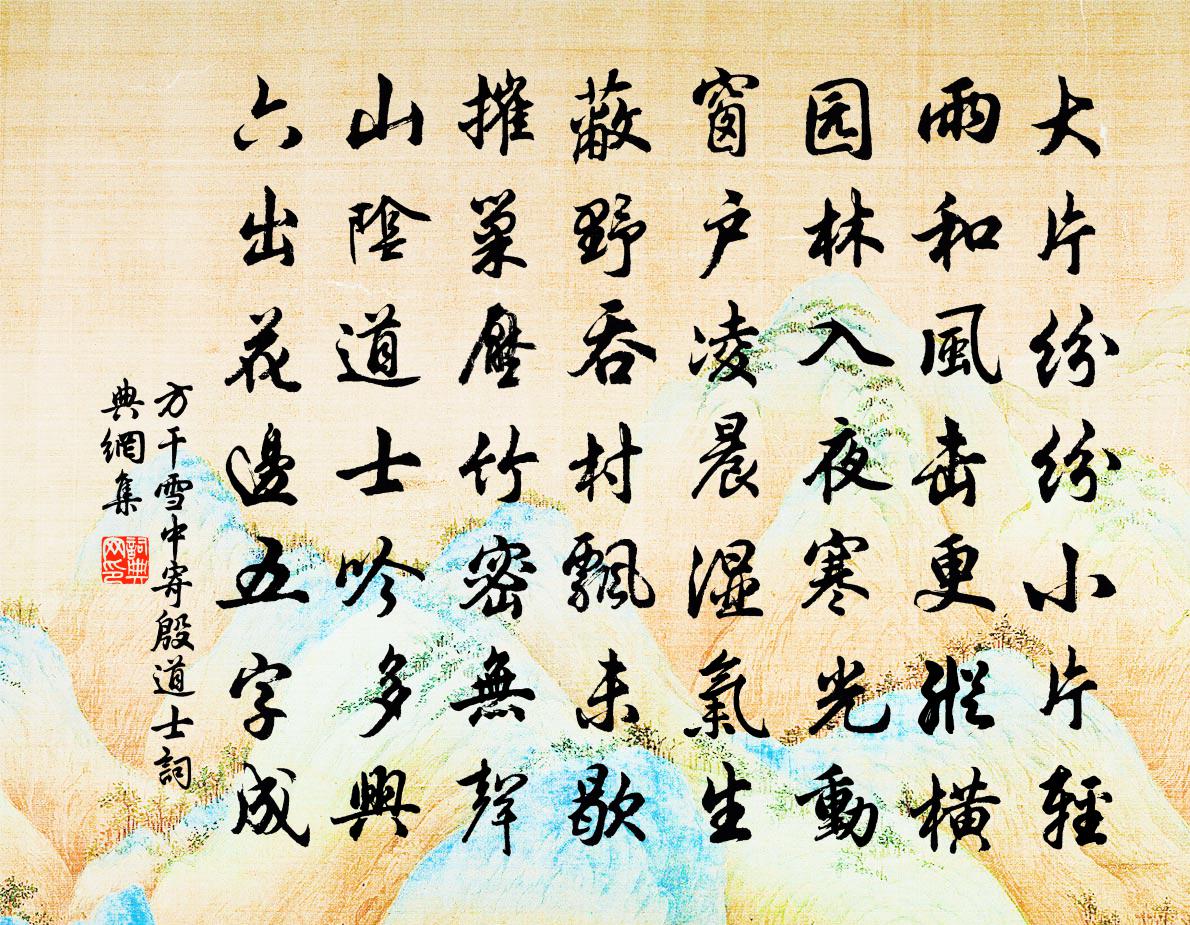 大片纷纷小片輕
雨和風击更縱橫
园林入夜寒光動
窗户凌晨湿氣生
蔽野吞村飄未歇
摧巢壓竹密無聲
山陰道士吟多興
六出花邊五字成
方干雪中寄殷道士詞
典網集
詞典网印